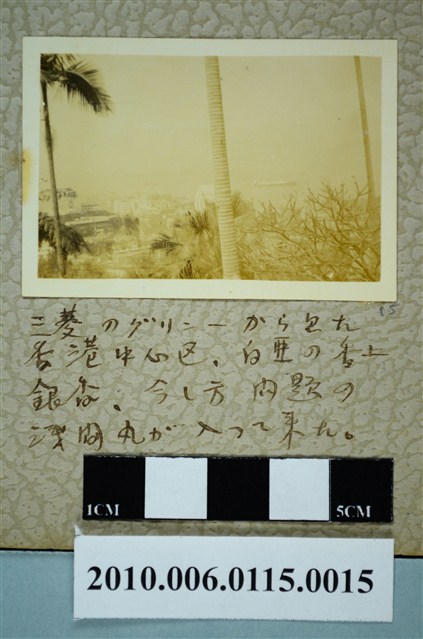 15
三菱のグリンーから見た
香港中心区、白亜の香上
銀行、今し方問題の
浅間丸が入って来た。
1CM 5CM
2010.006.0115.0015